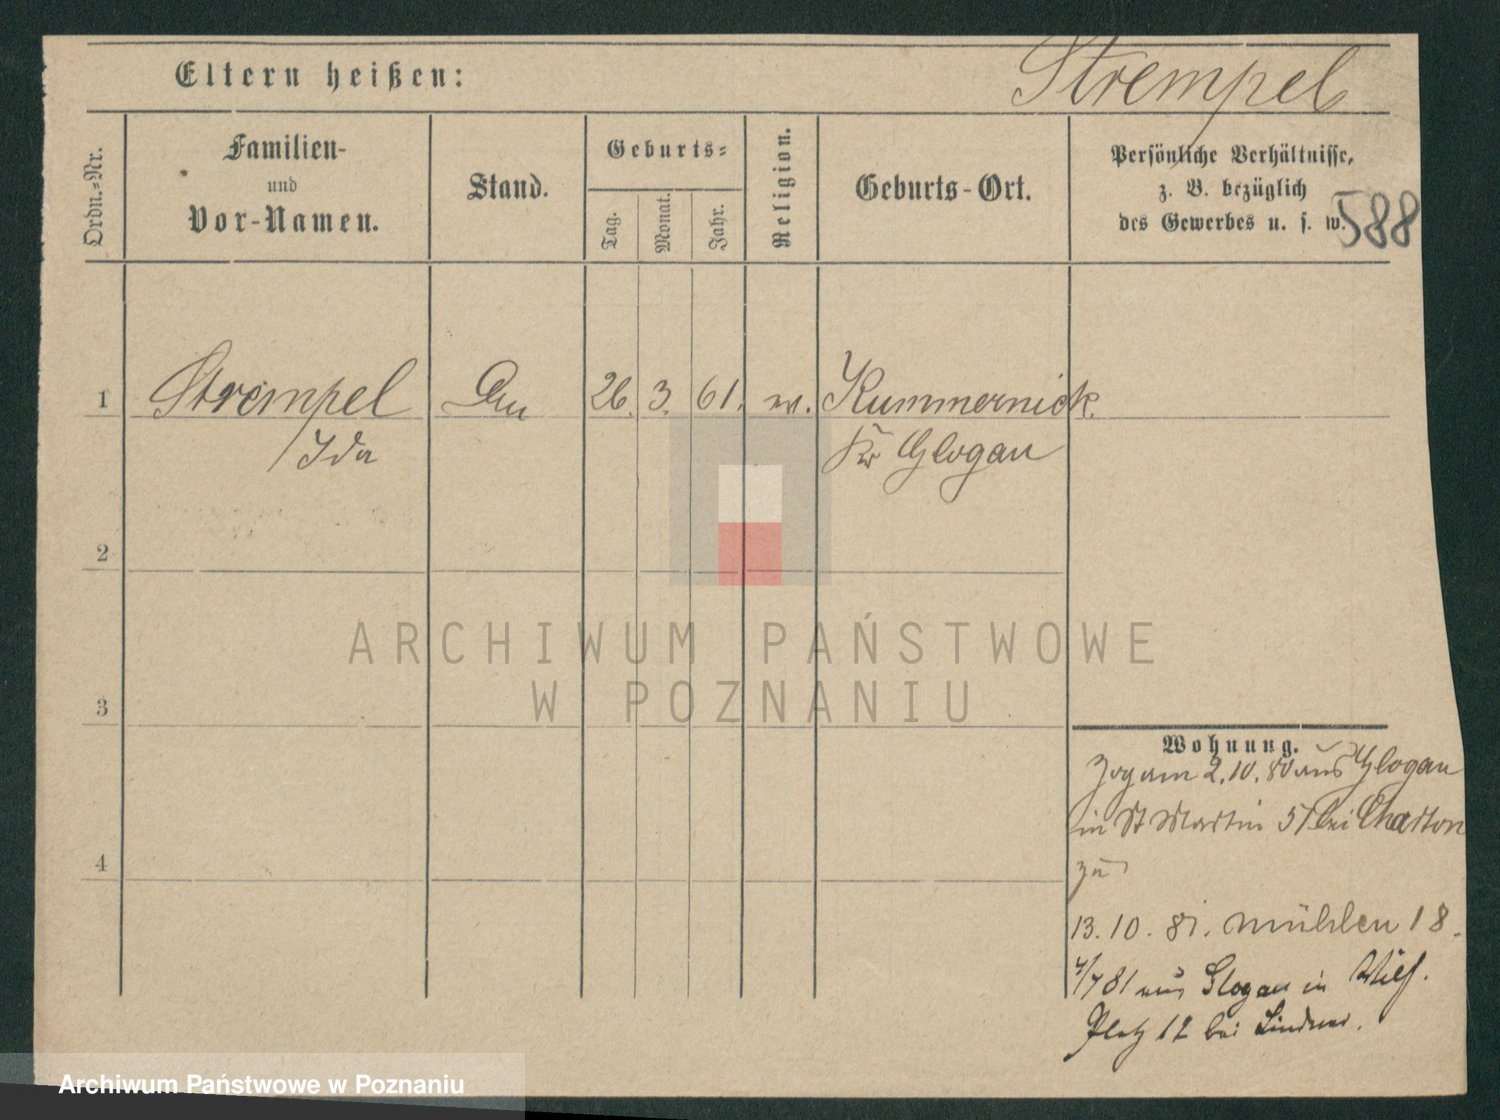 Eltern heißen:
Strempel
Ordn.-Nr.
Familien-
und
Vor-Namen.
Stand.
Geburts-
Tag.
Monat.
Jahr.
Religion.
Geburts-Ort.
Persönliche Verhältnisse,
z. B. bezüglich
des Gewerbes u. s. w.
588
1
Strempel
Ida
26. 3. 61.
Kummernick.
Kr Glogau
2
3
4
ARCHIWUM PAŃSTWOWE
W POZNANIU
Wohnung.
Zog am 2.10.80 aus Glogau
in St Martin 57 bei Charton
zu
13.10.81. Mühlen 18.
4/7 81 aus Glogau in Wilh.
Platz 12 bei Lindner.
Archiwum Państwowe w Poznaniu